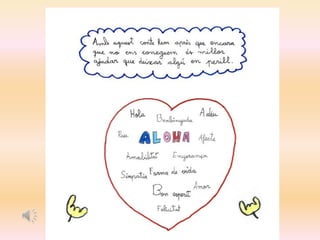 Amb aquest conte hem après que encara
que no ens coneguem és millor
ajudar que deixar algú en perill.
Hola Benvinguda Adeu
Pau ALOHA Afecte
Amabilitat Esperança
Simpatia Forma de vida
Bon esperit Amor
Felicitat